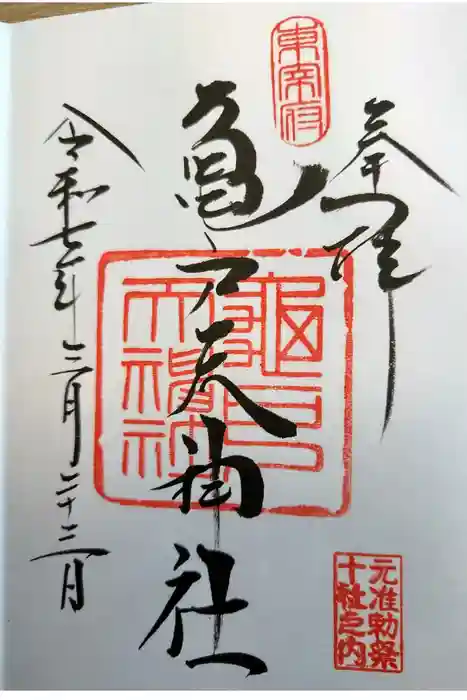 東宰府
奉拝
亀戸天神社
令和七年三月二十三日
元准勅祭
十社之内